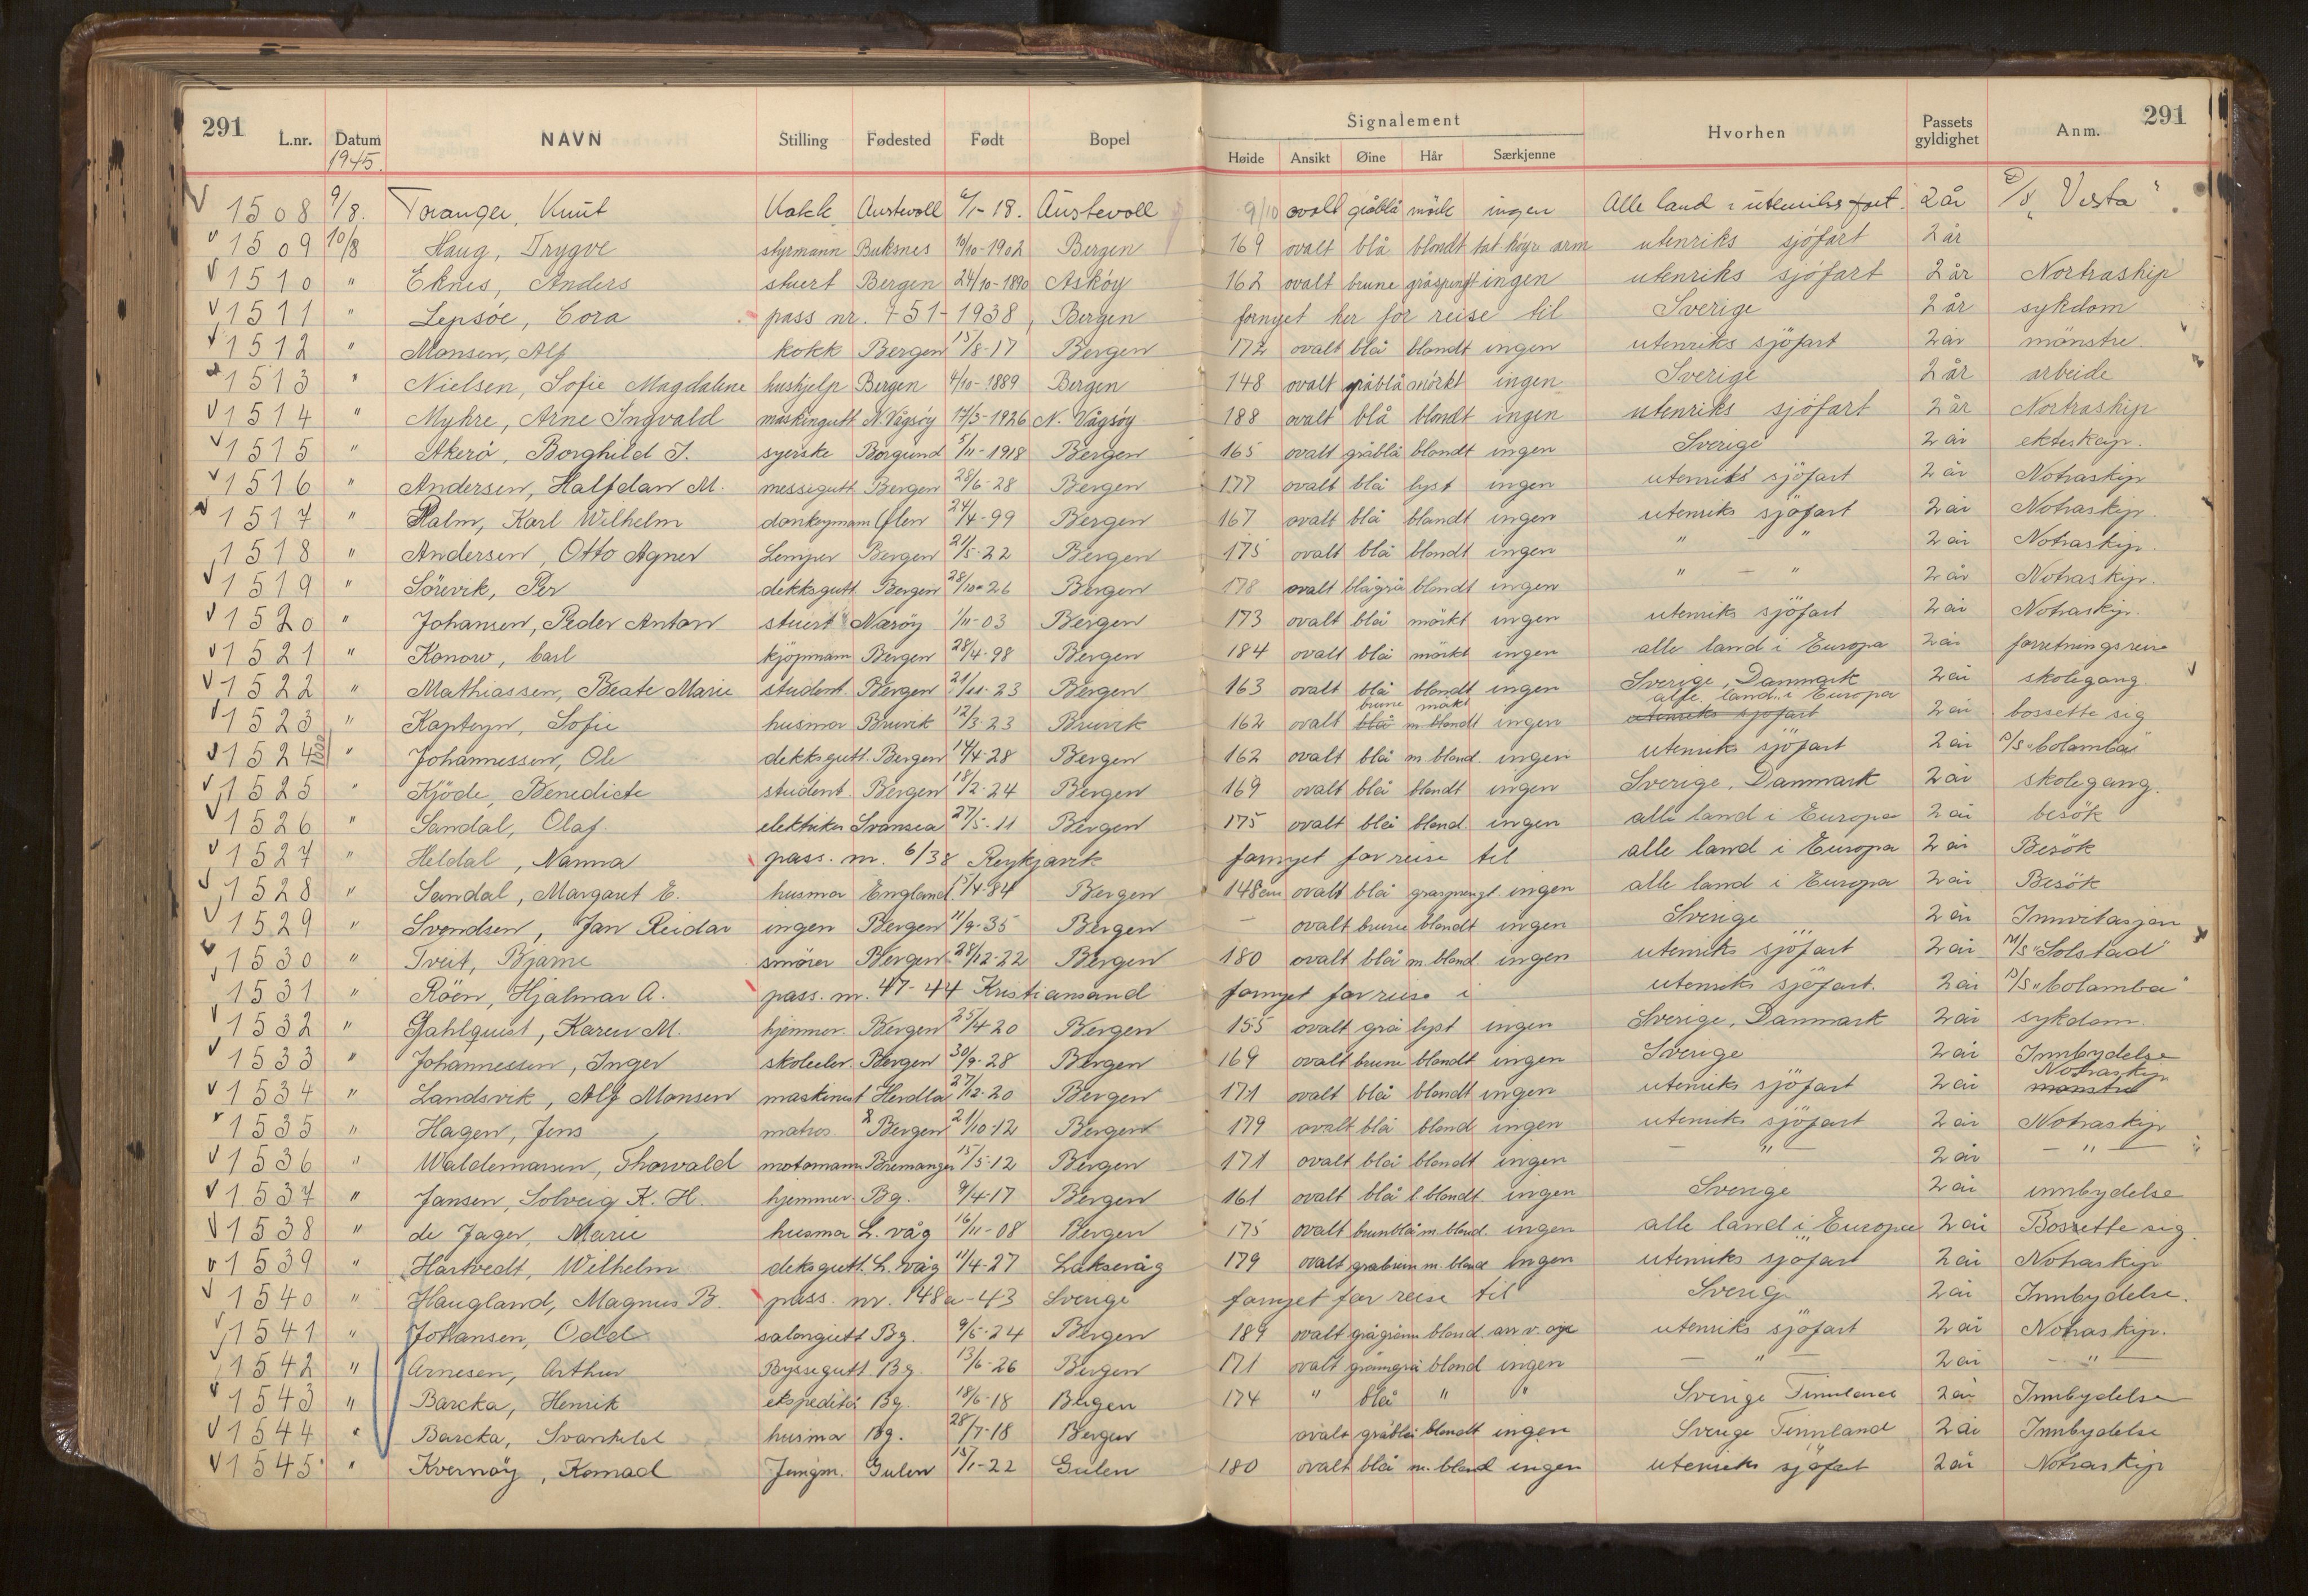 291 L.nr. Datum NAVN Stilling Fødested Født Bopel Signalement Hvorhen Passets gyldighet Anm. 291
1945. Høide Ansikt Øine Hår Særkjenne
1508 9/8. Toranger, Knut Kokk Austevoll 6/1-18. Austevoll ovalt gråblå mörk ingen Alle land i utenriks fart. 2 år D/S „Vesta"
1509 10/8 Haug, Trygve styrmann Buksnes 10/10-1902 Bergen 169 ovalt blå blondt tat. höyr arm utenriks sjöfart 2 år
1510 " Eknes, Anders stuert Bergen 24/10-1890 Asköy 162 ovalt brune gråsprengt ingen utenriks sjöfart 2 år Nortraship
1511 " Lepsöe, Cora pass nr. 751-1938, Bergen fornyet her for reise til Sverige 2 år sykdom
1512 " Monsen, Alf kokk Bergen 15/8-17 Bergen 172 ovalt blå blondt ingen utenriks sjöfart 2 år mönstre
1513 " Nielsen, Sofie Magdalene hushjelp Bergen 4/10-1889 Bergen 148 ovalt gråblå mörkt ingen Sverige 2 år arbeide
1514 " Myhre, Arne Ingvald maskingutt N. Vågsöy 17/3-1926 N. Vågsöy 188 ovalt blå blondt ingen utenriks sjöfart 2 år Nortraskip
1515 " Akerö, Borghild J. syerske Borgund 5/11-1918 Bergen 165 ovalt gråblå blondt ingen Sverige 2 år ekteskap.
1516 " Andersen, Halfdan M. messegutt Bergen 28/6-28 Bergen 177 ovalt blå lyst ingen utenriks sjöfart 2 år Notraskip
1517 " Palm, Karl Wilhelm donkeymann Ølen 24/4-99 Bergen 167 ovalt blå blondt ingen utenriks sjöfart 2 år Notraskip.
1518 " Andersen, Otto Agner Lemper Bergen 21/5-22 Bergen 175 ovalt blå blondt ingen " — " 2 år Notraskip.
1519 " Sörevik, Per dekksgutt Bergen 28/10-26 Bergen 178 ovalt blågrå blondt ingen " — " 2 år Notraskip.
1520 " Johansen, Peder Anton stuert Næröy 1/11-03 Bergen 173 ovalt blå mörkt ingen utenriks sjöfart 2 år Notraskip.
1521 " Konow, Carl kjöpmann Bergen 28/4-98 Bergen 184 ovalt blå mörkt ingen alle land i Europa 2 år forretningsreise
1522 " Mathiassen, Beate Marie student. Bergen 21/11-23 Bergen 163 ovalt blå blondt ingen Sverige, Danmark 2 år skolegang.
brune mörkt alle land i Europa
1523 " Kapteyn, Sofie husmor Bruvik 12/3-23 Bruvik 162 ovalt blå m. blondt ingen utenriks sjöfart 2 år bossette sig
1524 " Johannessen, Ole dekksgutt. Bergen 14/4-28 Bergen 162 ovalt blå m. blond. ingen utenriks sjöfart 2 år D/S „Colombia"
1525 " Kjöde, Benedicte student. Bergen 18/2-24 Bergen 169 ovalt blå blondt ingen Sverige, Danmark 2 år skolegang.
1526 " Sandal, Olaf elektriker Svansea 27/5-11 Bergen 175 ovalt blå blond. ingen alle land i Europa 2 år besök
1527 " Heldal, Nanna pass. nr. 6/38 Reykjavik fornyet for reise til alle land i Europa 2 år Besök
1528 " Sandal, Margaret E. husmor England 17/4-84 Bergen 148cm ovalt blå gråsprengt ingen alle land i Europa 2 år Besök
1529 " Svendsen, Jan Reidar ingen Bergen 11/9-35 Bergen — ovalt brune blondt ingen Sverige 2 år Innvitasjon
1530 " Tveit, Bjarne smörer Bergen 28/12-22 Bergen 180 ovalt blå m. blond. ingen utenriks sjöfart 2 år M/S „Solstad"
1531 " Röen, Hjalmar A. pass. nr. 47-44 Kristiansand fornyet for reise i utenriks sjöfart. 2 år
1532 " Gahlquist, Karen M. hjemmev. Bergen 25/4-20 Bergen 155 ovalt grå lyst ingen Sverige, Danmark 2 år sykdom.
1533 " Johannessen, Inger skoleelev. Bergen 30/9-28 Bergen 169 ovalt brune blondt ingen Sverige 2 år Innbydelse
Notraskip
1534 " Landsvik, Alf Monsen maskinist Herdla 27/12-20 Bergen 171 ovalt blå blondt ingen utenriks sjöfart 2 år mönstre
1535 " Hagen, Jens matros Bergen 21/10-12 Bergen 179 ovalt blå blond. ingen utenriks sjöfart 2 år Notraskip
1536 " Waldemarsen, Thorvald motormann Bremanger 15/5-12 Bergen 171 ovalt blå blondt ingen — " — 2 år — " —
1537 " Jansen, Solveig K. H. hjemmev. Bg. 9/4-17 Bergen 161 ovalt blå l. blondt ingen Sverige 2 år innbydelse
1538 " de Jager, Marie husmor L. våg 16/11-08 Bergen 175 ovalt brunblå m. blond. ingen alle land i Europa 2 år Bossette sig.
1539 " Hartvedt, Wilhelm deksgutt. L. våg 11/4-27 Laksevåg 179 ovalt gråbrun m. blond ingen utenriks sjöfart 2 år Notraskip
1540 " Haugland, Magnus B. pass. nr. 148a-43 Sverige fornyet for reise til Sverig 2 år Innbydelse.
1541 " Johansen, Odd salongutt Bg. 9/5-24 Bergen 189 ovalt grågrönn blond. arr v. öye utenriks sjöfart 2 år Notraskip.
1542 " Arnesen, Arthur Byssegutt. Bg. 13/6-26 Bergen 171 ovalt grönngrå blond ingen — " — 2 år — " —
1543 " Barcka, Henrik ekspeditör Bg. 18/6-18 Bergen 174 " blå " " Sverige Finnland 2 år Innbydelse
1544 " Barcka, Svanhild husmor Bg. 28/7-18 Bergen ovalt gråblå blondt ingen Sverige Finnland 2 år Innbydelse
1545 " Kvernöy, Konrad Jungm. Gulen 15/1-22 Gulen 180 ovalt blå m. blond ingen utenriks sjöfart 2 år Notraskip